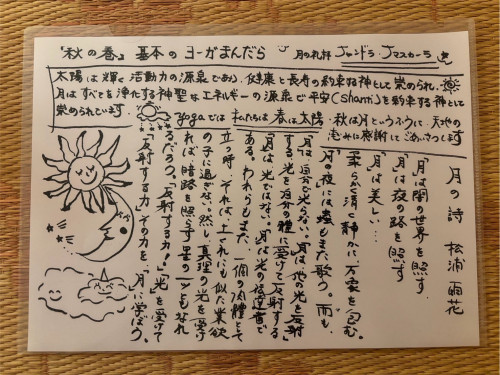 「秋の巻」基本のヨーガまんだら 月の礼拝 チャンドラ・ナマスカーラ
太陽は輝く活動力の源泉であり、健康と長寿の約束する神として崇められ、
月はすべてを浄化する神聖なエネルギーの源泉で平安(Shanti)を約束する神として
崇められています。 Yogaでは 春は太陽・秋は月というふうにして、天地の
めぐみに感謝してごあいさつします
月の詩 松浦雨花
月は闇の世界を照す
月は夜の路を照す
月は美しい…
柔らかく清く静かに、万象を包む。
月の夜には、虫もまた歌う。而も、
月は自分で光らない。月は他の光を反射
する。光を自分の體に受けて反射する。
月は光ではない。月は光の伝達者で
ある。われらもまた、一個の肉體として
立つ時、それは、土くれにも似た業欲
の子に過ぎない。然し、真理の光を受け
れば、暗路を照す子星の一つともなれ
るだろう。「反射する力！」光を受けて
「反射する力」その力を「月」に学ぼう。